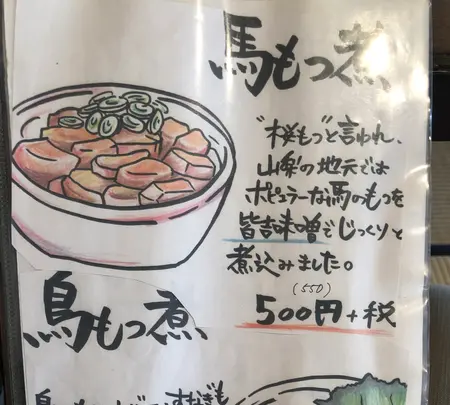 馬もつ煮
"桜もつ"と言われ、
山梨の地元では
ポピュラーな馬のもつを
皆吉味噌でじっくりと
煮込みました。
(550)
500円+税
鳥もつ煮